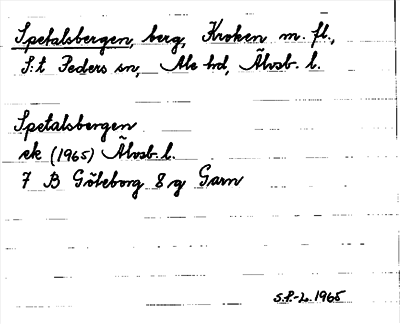 Spetalsbergen, berg, Kroken m. fl.,
S:t Peders sn, Ale hd, Älvsb. l.
Spetalsbergen
ek (1965) Älvsb. l.
7 B Göteborg 8 g Garn
S.P.-L. 1965